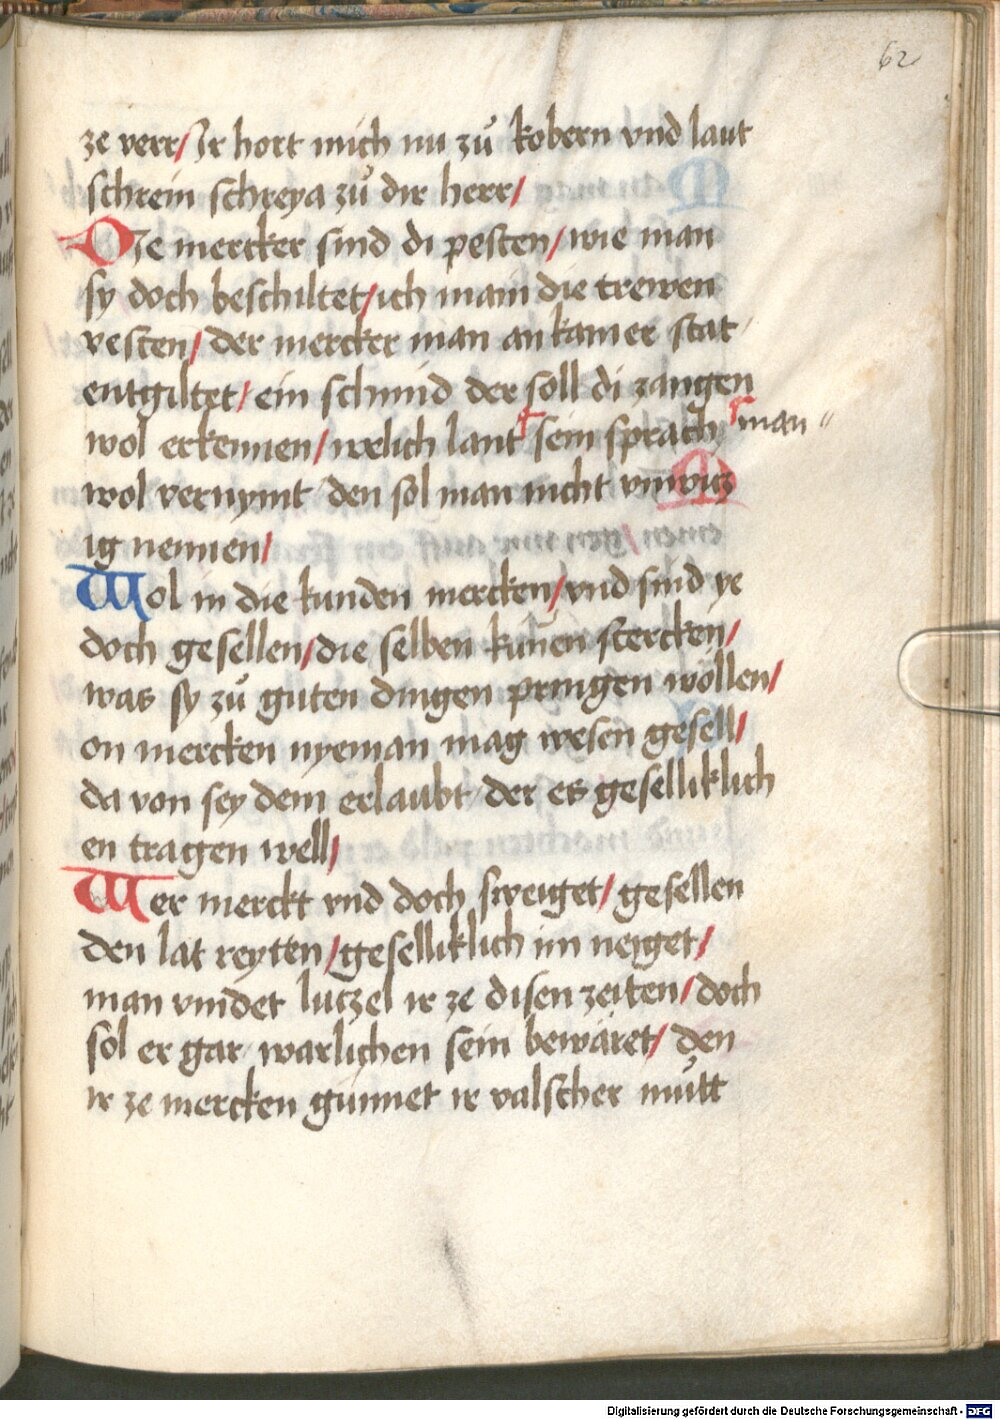 62
ze verr/ Ir hort mich nu zů kobern vnd laut
schrein schreya zů dir herr/
Die mercker sind di pesten/ wie man
sy doch beschiltet/ ich main die trewen
vesten/ der mercker man an kamer stat
entgiltet/ ein schmid der soll di zangen
wol erkennen/ welich lant sein sprach man
wol vernymt den sol man nicht vnwitz
ig nennen/
Wol in die kunden mercken/ vnd sind ye
doch gesellen/ die selben kunen stercken/
was sy zů guten dingen pringen wöllen/
on mercken nyeman mag wesen gesell/
da von sey dem erlaubt der es geselliklich
en tragen well/
Wer merckt vnd doch sweiget/ gesellen
den lat reyten/ geselliklich im neiget/
man vindet lutzel ir ze disen zeiten/ doch
sol er gar warlichen sein bewäret/ den
ir ze mercken günnet ir valscher mutt
Digitalisierung gefördert durch die Deutsche Forschungsgemeinschaft - DFG